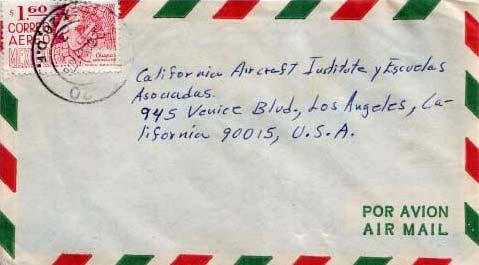 $1.60
CORREO
AEREO
MEXICO
Chiapas
California Aircraft Institute y Escuelas
Asociadas.
945 Venice Blvd., Los Angeles, Ca-
lifornia 90015, U.S.A.
POR AVION
AIR MAIL